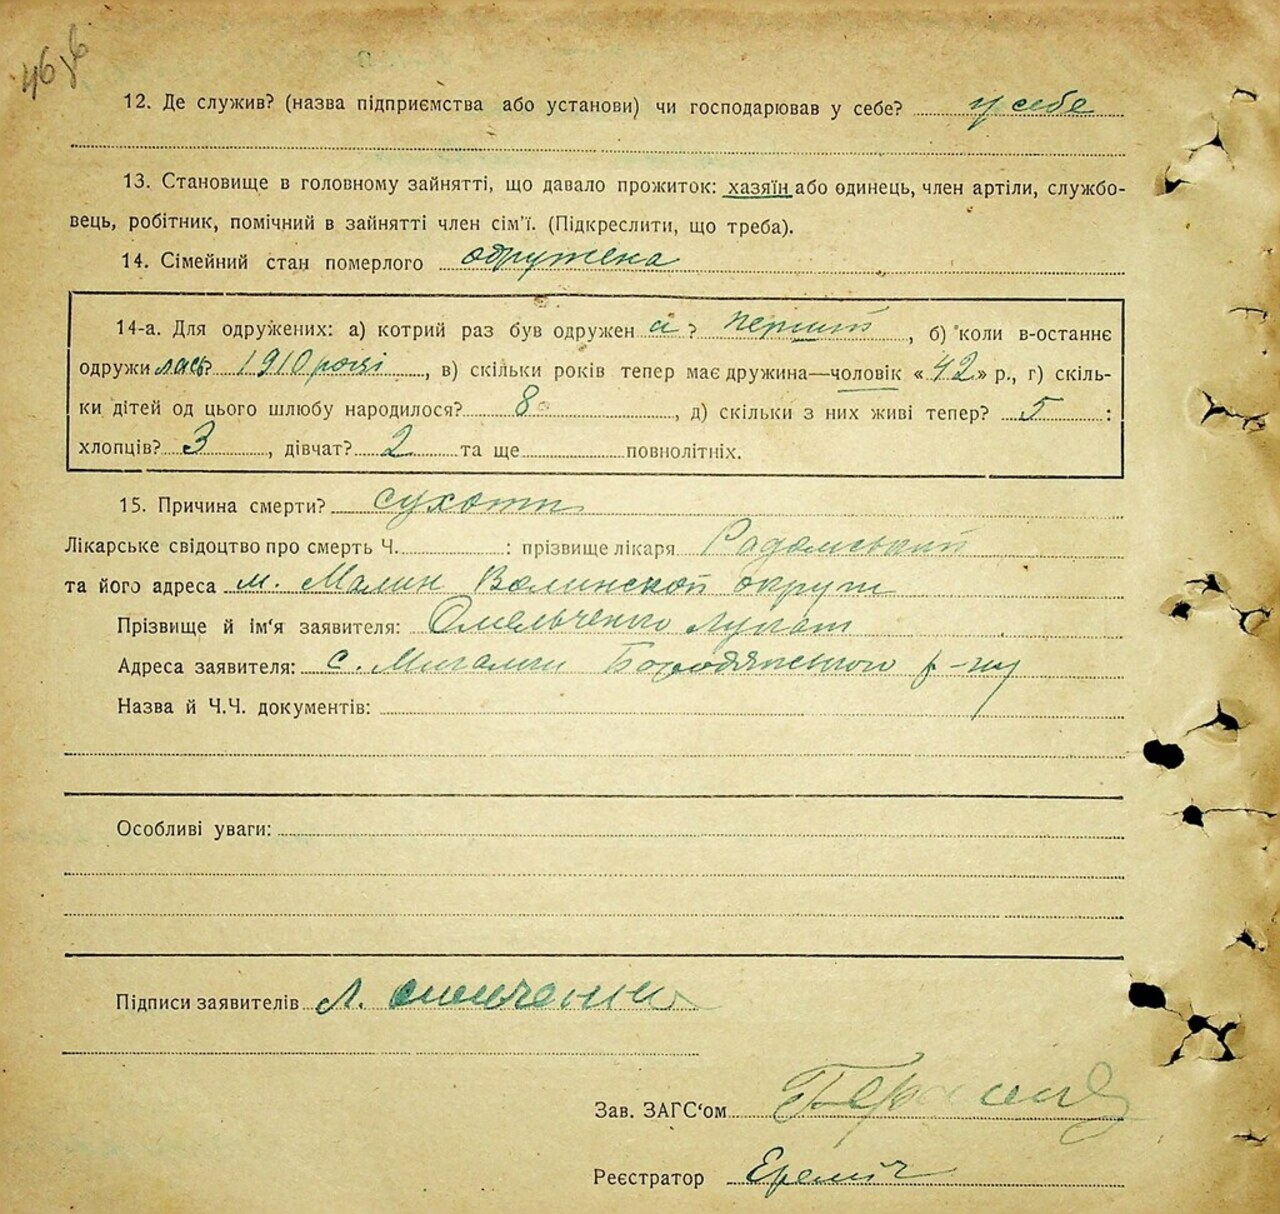 12. Де служив? (назва підприємства або установи) чи господарював у себе? у себе
13. Становище в головному зайнятті, що давало прожиток: хазяїн або одинець, член артіли, службо-
вець, робітник, помічний в зайнятті член сім'ї. (Підкреслити, що треба).
14. Сімейний стан померлого одружена
14-а. Для одружених: а) котрий раз був одружен а ? перший, б) коли в-останнє
одружилась? 1910 році, в) скільки років тепер має дружина—чоловік « 42 » р., г) скіль-
ки дітей од цього шлюбу народилося? 8, д) скільки з них живі тепер? 5 :
хлопців? 3, дівчат? 2 та ще повнолітніх.
15. Причина смерти? сухоти
Лікарське свідоцтво про смерть Ч. : прізвище лікаря Радомський
та його адреса м. Малин Волинской округи
Прізвище й ім'я заявителя: Омельченко
Адреса заявителя: с. Мигалки Бородянського р-ну
Назва й Ч.Ч. документів:
Особливі уваги:
Підписи заявителів Л.
Зав. ЗАГС'ом
Реєстратор